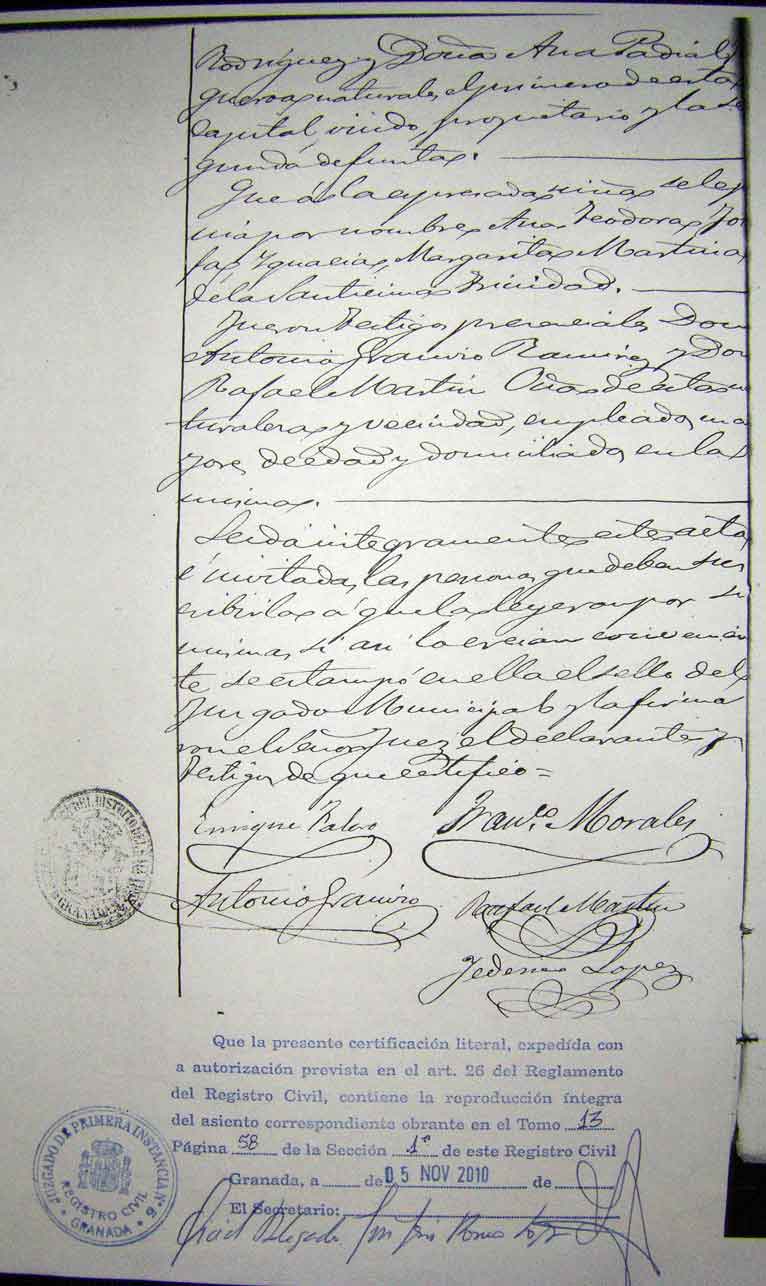 Rodriguez y Doña Ana Padial
naturales, el primero de esta
Capital, viudo, propietario y la se
gunda defunta.
Que á la espresada niña se le
por nombre Ana, Teodora, Jo
sefa, Ygnacia, Margarita, Martina
de la Santisima Trinidad.
Fueron testigos presenciales, Don
Antonio Ramirez, y Don
Rafael Martin de esta na
turaleza y vecindad, empleados, ma
yores de edad y domiciliados en la
misma.
Leida integramente este acta
é invitadas las personas que deben sus
cribirla á que la leyeran por si
mismas, si asi lo creian convenien
te, se estampó en ella el sello del
Juzgado Municipal y la firma
ron el Señor Juez, el declarante y
testigos de que certifico =
Enrique Franco. Morales
Antonio Rafael Martin
Lopez
Que la presente certificación literal, expedída con
a autorización prevista en el art. 26 del Reglamento
del Registro Civil, contiene la reproducción íntegra
del asiento correspondiente obrante en el Tomo 13
Página 58 de la Sección 1ª de este Registro Civil
Granada, a de 05 NOV 2010 de
El Secretario:
JUZGADO DE PRIMERA INSTANCIA Nº 6
REGISTRO CIVIL
GRANADA